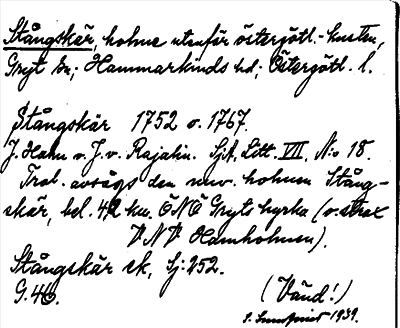 Stångskär, holme utanför östergötl.-kusten,
Gryt sn; Hammarkinds hd; Östergötl. l.
Stångskär 1752 o. 1767.
J. Hahn o. J. v. Rajalin. Sjk. Litt. VII. N:o 18.
Trol. avsågs den nuv. holmen Stång-
skär, bel. 4,2 km. ÖNÖ Gryts kyrka (o. strax
VNV Hamnholmen).
Stångskär ek, Sj: 252.
G. 46.
(Vänd!)
S. Sundqvist 1939.